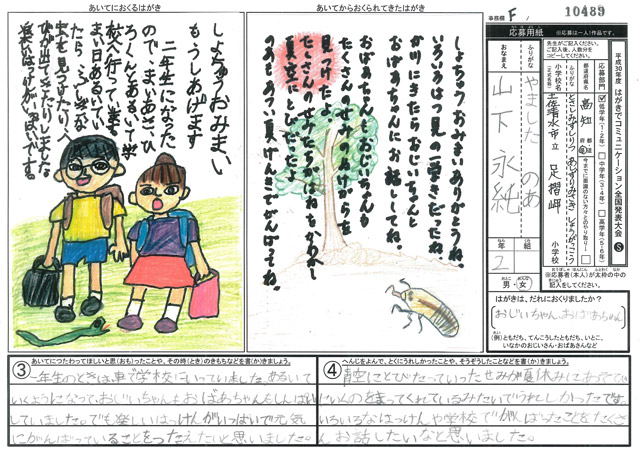 あいてにおくるはがき
しょちゅうおみまい
もうしあげます
二年生になった
ので、まいあさ、ひ
ろくんとあるいて学
校へ行っています。
まい日あるいてい
あいてからおくられてきたはがき
しょちゅうおみまいありがとうね。
いろいろはっ見の一学きだったね
か川にきたらおじいちゃんと
おばあちゃんにお話してね。
おばあちゃんとおじいちゃんも
たくさんのせみのぬけがらを
見つけたよ。
たくさんのせみたちがはねをかわかし
青空にとびたったよ
のあ あつい夏もげんきでがんばってね。
事務欄 F,
10489
応募用紙
(※応募は一人1作品です。)
先生がご記入ください。
ご記入後、人数分を
コピーしてください。
平成30年度 はがきでコミュニケーション全国発表大会 S
応募部門
低学年(1・2年)
中学年(3・4年)
高学年(5・6年)
今までに面識のない方々とのやり取り
都道府県名
高知
都 道 府 県
ふりがな
とさしみずしりつ あしずりみさき しょうがっこう
小学校名
(正式名称)
土佐清水市立 足摺岬 小学校
ふりがな
やました のあ
おなまえ
山下 永純
年 組
2
男・女
※応募者(本人)が太枠の中の
記入をしてください。
はがきは、だれにおくりましたか?
(おじいちゃん、おばあちゃん)
(例)ともだち、てんこうしたともだち、いとこ、
いなかのおじいさん・おばあさんなど
③ あいてにつたわってほしいと思(おも)ったことや、その時(とき)のきもちなどを書(か)きましょう。
一年生のときは車で学校にいっていました。あるいて
いくようになって、おじいちゃんもおばあちゃんもしんぱい
していました。でも楽しいはっけんがいっぱいで元気
にがんばっていることをつたえたいと思いました。
④ へんじをよんで、とくにうれしかったことや、そうぞうしたことなどを書(か)きましょう。
青空にとびたっていったせみが夏休みにあって
いくのをまってくれているみたいでうれしかったです。
いろいろなはっけんや学校でがんばったことをたくさ
んお話したいなと思いました。